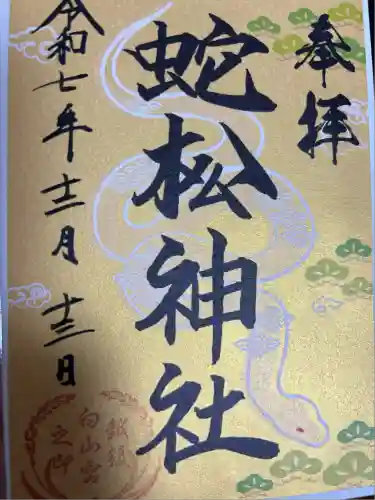 奉拝
蛇松神社
令和七年十二月十三日
白山宮之印